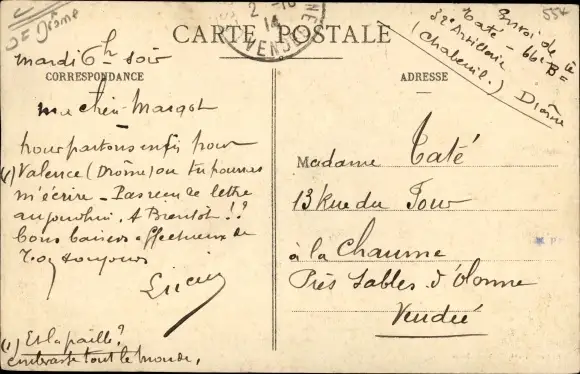 2e Drôme
2
14
VENDÉE
554
CARTE POSTALE
Envoi de
Taté - 66e Bie
32e Artillerie
(Chabeuil.) Drôme
mardi 6h soir
CORRESPONDANCE
ADRESSE
ma chère Margot
nous partons enfin pour
(1) Valence (Drôme) ou tu pourras
m'écrire - Pas reçu de lettre
aujourd'hui. A Bientôt !?
Bons baisers affectueux de
Toujours
Lucien
(1) Et la paille ?
embrasse tout le monde.
Madame Taté
13 Rue du Four
à la Chaume
Près Sables d'Olonne
Vendée